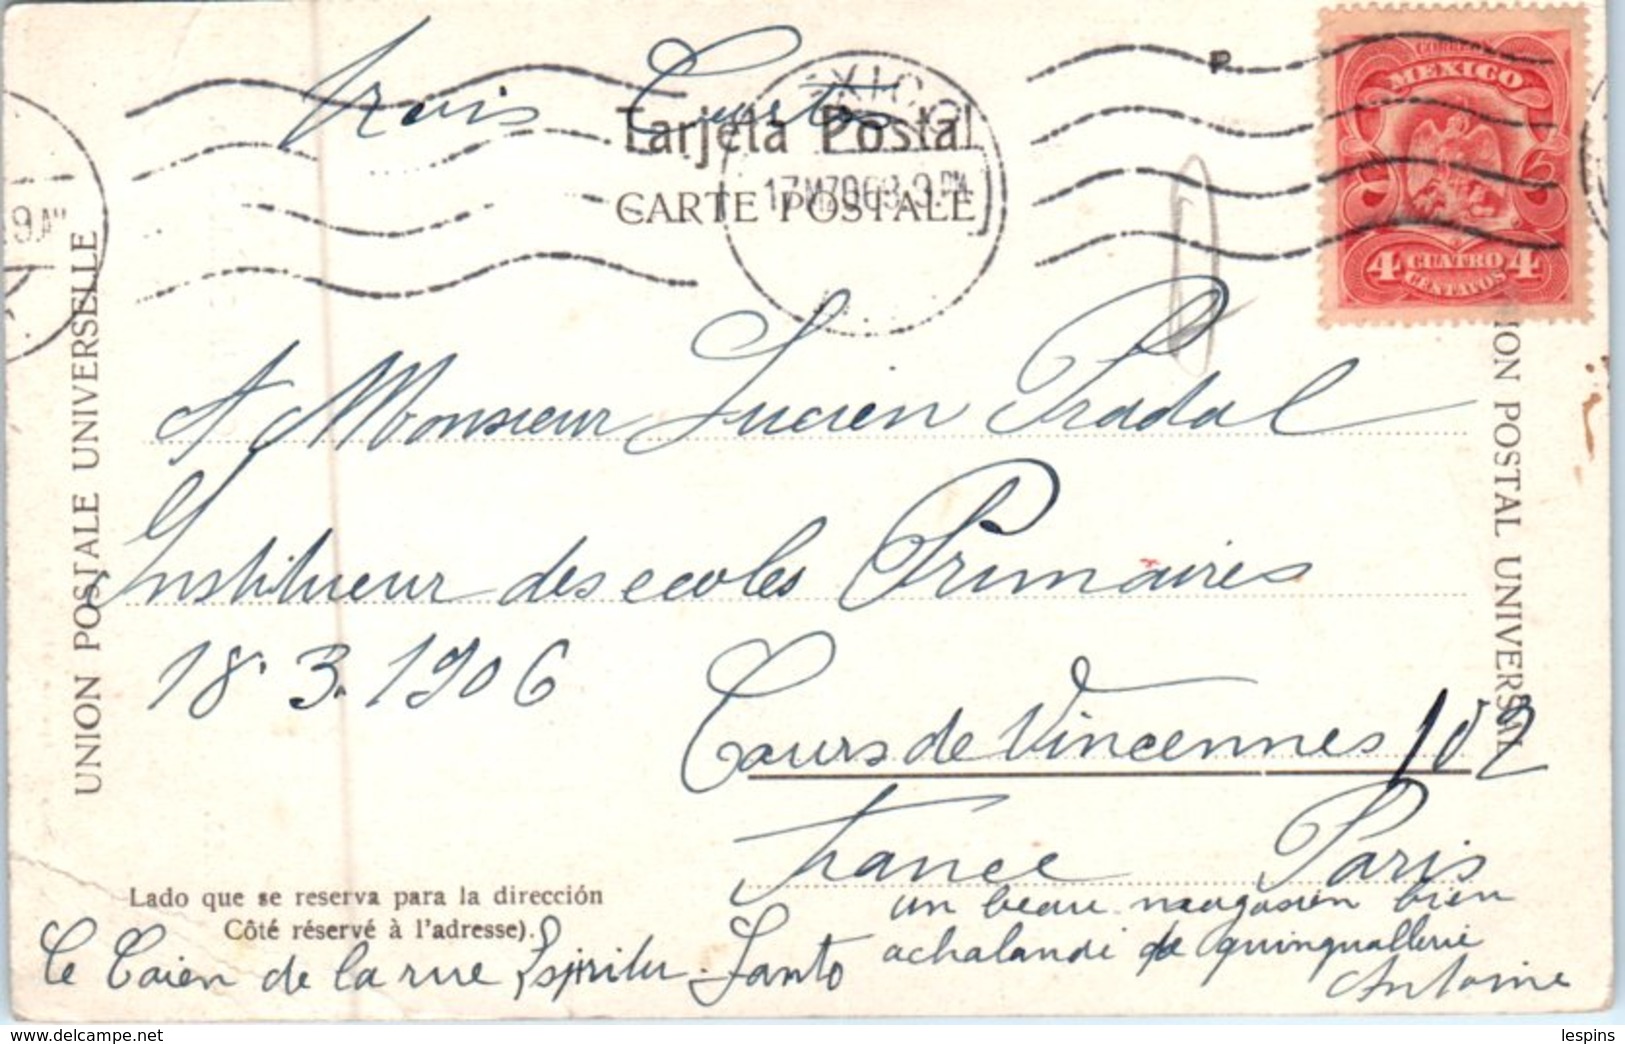 trois Cartes
Tarjeta Postal
CARTE POSTALE
17 MZO 06 8 9 PM
MEXICO
4 CUATRO 4
CENTAVOS
UNION POSTALE UNIVERSELLE
UNION POSTAL UNIVERSAL
A Monsieur Lucien Pradal
Institueur des ecoles Primaires
18. 3. 1906
Cours de Vincennes 102
France Paris
Lado que se reserva para la dirección
Côté réservé à l'adresse).
Le Coien de la rue Espiritu-Santo
un beau magasien bien
achalandé de quinquallerie
Antoine
lespins
http://www.delcampe.net